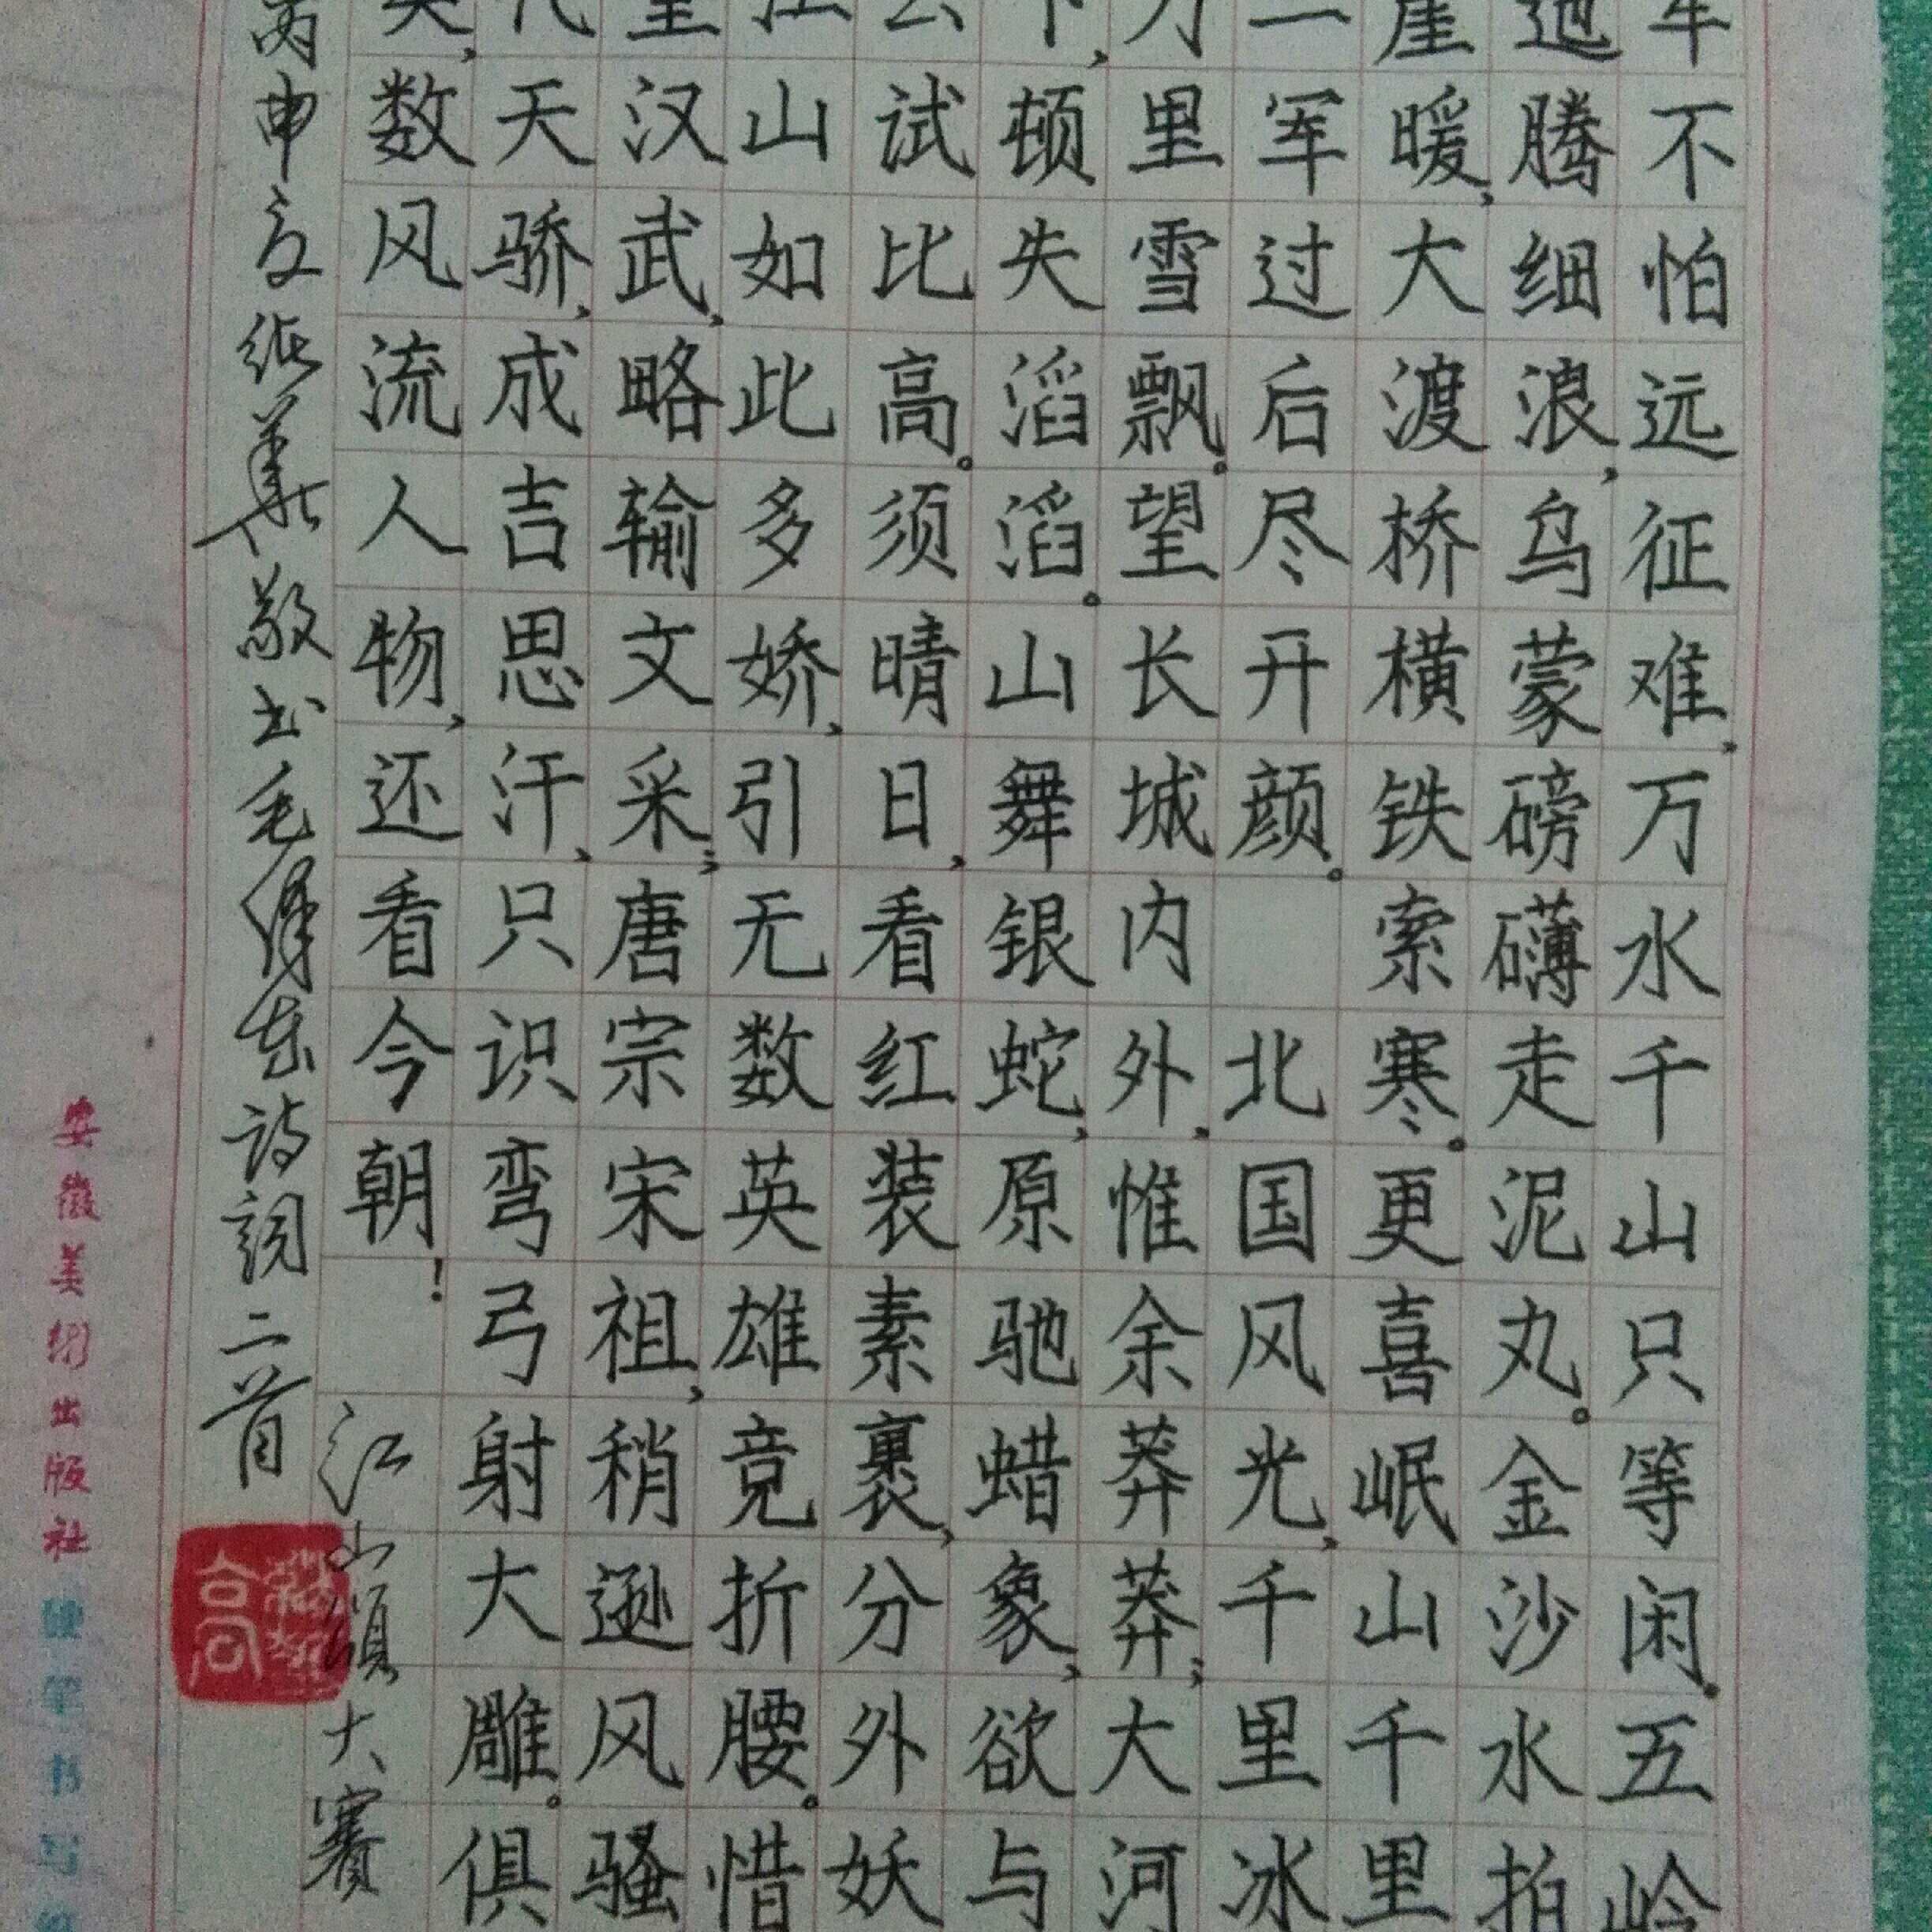 军不怕远征难,万水千山只等闲。五岭
迤腾细浪,乌蒙磅礴走泥丸。金沙水拍
崖暖,大渡桥横铁索寒。更喜岷山千里
三军过后尽开颜。 北国风光,千里冰
万里雪飘。望长城内外,惟余莽莽;大河
下,顿失滔滔。山舞银蛇,原驰蜡象,欲与
公试比高。须晴日,看红装素裹,分外妖
江山如此多娇,引无数英雄竞折腰。惜
皇汉武,略输文采;唐宗宋祖,稍逊风骚
代天骄,成吉思汗,只识弯弓射大雕。俱
矣,数风流人物,还看今朝!
江山颂大赛
丙申夏 敬书毛泽东诗词二首
安徽美术出版社 硬笔书写